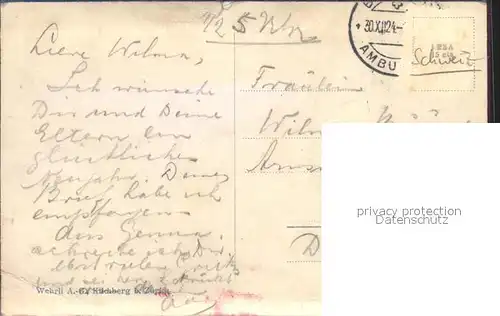 1/2 5 Uhr
30.XII.24-
AMBU
Schweiz
Liebe Wilma,
Ich wünsche
Dir und Deine
Eltern ein
glückliches
Neujahr. Deinen
Brief habe ich
empfangen
Aus Genua
schreibe ich Dir
und sei herz
Wehrli A.-G., Kilchberg b. Zürich
Fräulein
Wilm
D
privacy protection
Datenschutz